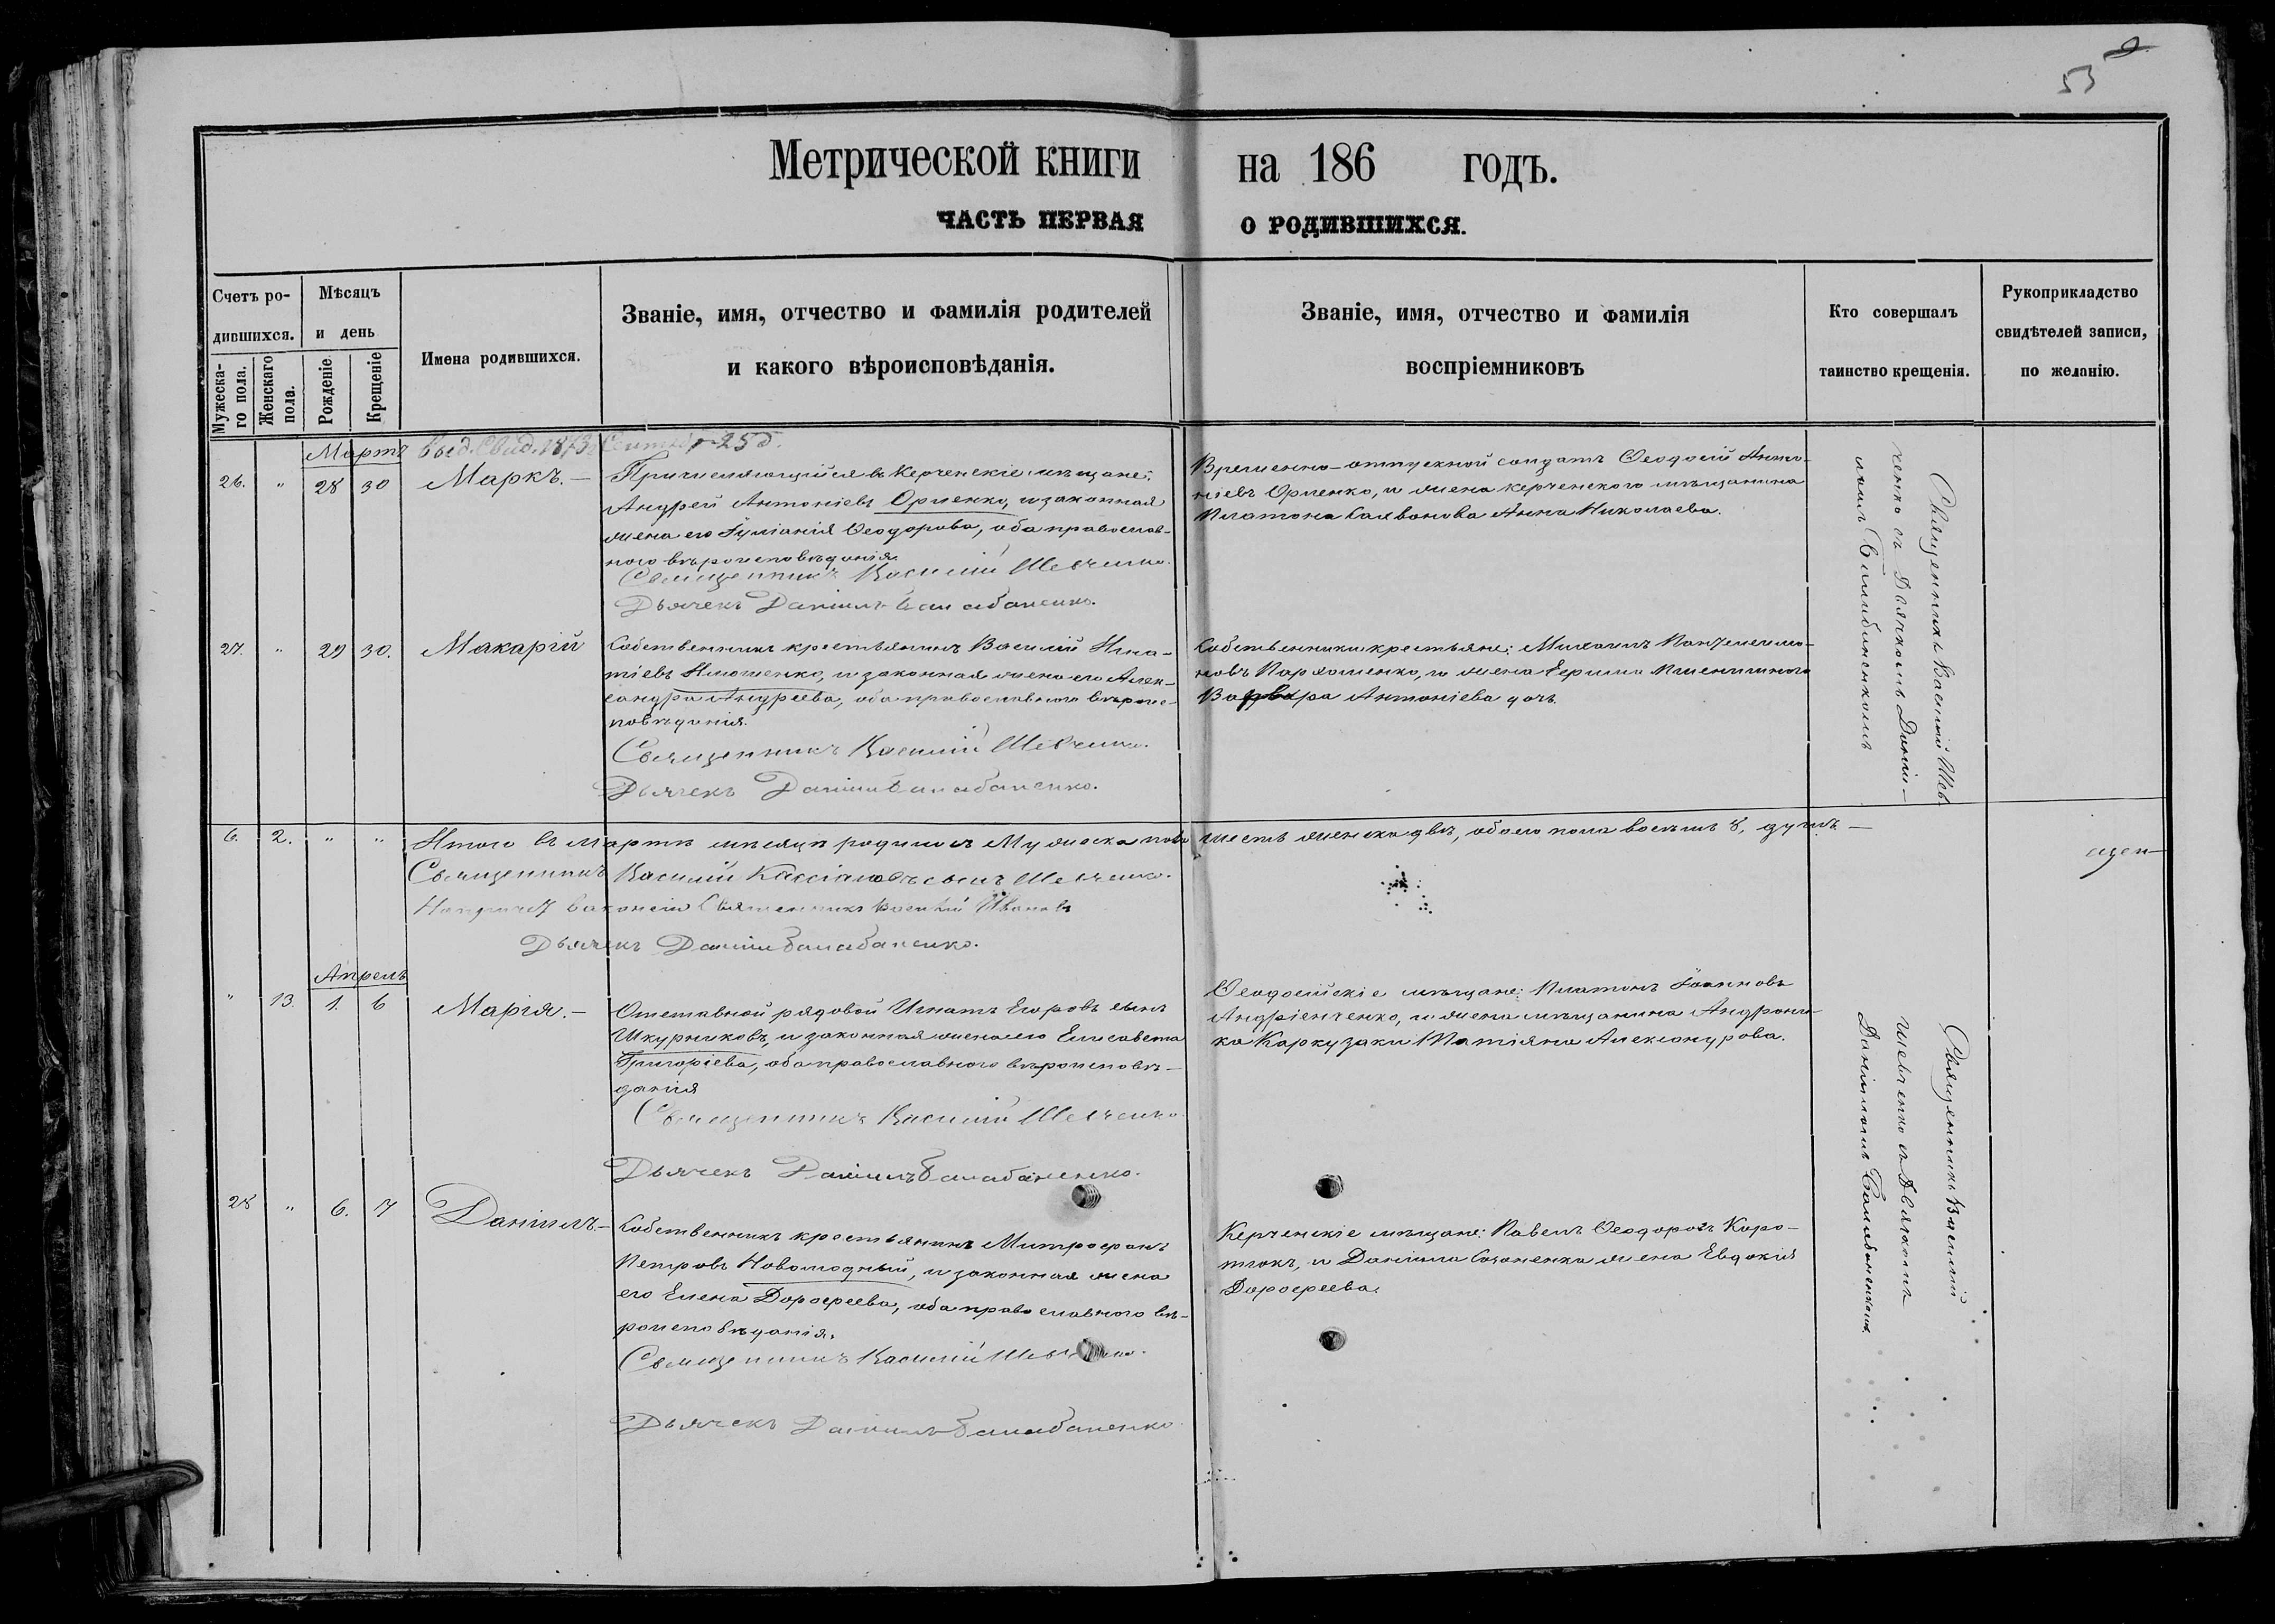 53
Метрической книги на 186 годъ.
ЧАСТЬ ПЕРВАЯ О РОДИВШИХСЯ.
Счетъ ро-
дившихся.
Мужеска-
го пола.
Женскаго
пола.
Мѣсяцъ
и день
Рожденіе
Крещеніе
Имена родившихся.
Званіе, имя, отчество и фамилія родителей
и какого вѣроисповѣданія.
Званіе, имя, отчество и фамилія
воспріемниковъ
Кто совершалъ
таинство крещенія.
Рукоприкладство
свидѣтелей записи,
по желанію.
Мартъ Выд. Свид. 1873 Сентяб. 25 д.
26. " 28 30 Маркъ.—
Причисляющійся въ Керченскіе мѣщане:
Андрей Антоніевъ Орленко, и законная
жена его Іуліанія Ѳеодорова, оба православ-
ного вѣроисповѣданія.
Священникъ Василій Шевченко.
Дьячекъ Даніилъ Балабаненко.
Временно-отпускной солдатъ Ѳеодосій Анто-
ніевъ Орленко, и жена керченского мѣщанина
Платона Анна Николаева.
Священникъ Василій Шев
ченко съ Дьячкомъ Даніи-
ломъ Балабаненкомъ
27. " 29 30. Макарій
Собственникъ крестьянинъ Василій Игна-
тіевъ и законная жена его Алек-
сандра Андреева, оба православного вѣроис-
повѣданія.
Священникъ Василій Шевченко.
Дьячекъ Даніилъ Балабаненко.
Собственники крестьяне: Михаилъ Пантелеимо-
новъ Пархоменко, и жена Ефима Пшенишного
Варвара Антоніева дочь.
6. 2. " " Итого въ мартѣ мѣсяцѣ родилось Мужеска пола шесть женска двѣ, обоего пола восемь 8, душъ.—
Священникъ Василій Кассіановъ сынъ Шевченко.
Священникъ Василій Ивановъ
Дьячекъ Даніилъ Балабаненко.
Апрель
" 13. 1. 6 Марія.—
Отставной рядовой Игнатъ Егоровъ сынъ
Шкурниковъ, и законная жена его Елисавета
Григоріева, оба православного вѣроисповѣ-
данія
Священникъ Василій Шевченко
Дьячекъ Даніилъ Балабаненко.
Ѳеодосійскіе мѣщане: Платонъ Іоанновъ
Андріенченко, и жена мѣщанина Андрони-
ка Каркузаки Татіяна Александрова.
Священникъ Василій
Шевченко съ Дьячкомъ
Даніиломъ Балабаненкомъ.
28 " 6. 7 Даніилъ.—
Собственникъ крестьянинъ Митрофанъ
Петровъ Новомодный, и законная жена
его Елена Дорофеева, оба православного вѣ-
роисповѣданія.
Священникъ Василій Шевченко.
Дьячекъ Даніилъ Балабаненко
Керченскіе мѣщане: Павелъ Ѳеодоровъ Коро-
ткокъ, и Даніила жена Евдокія
Дорофеева.